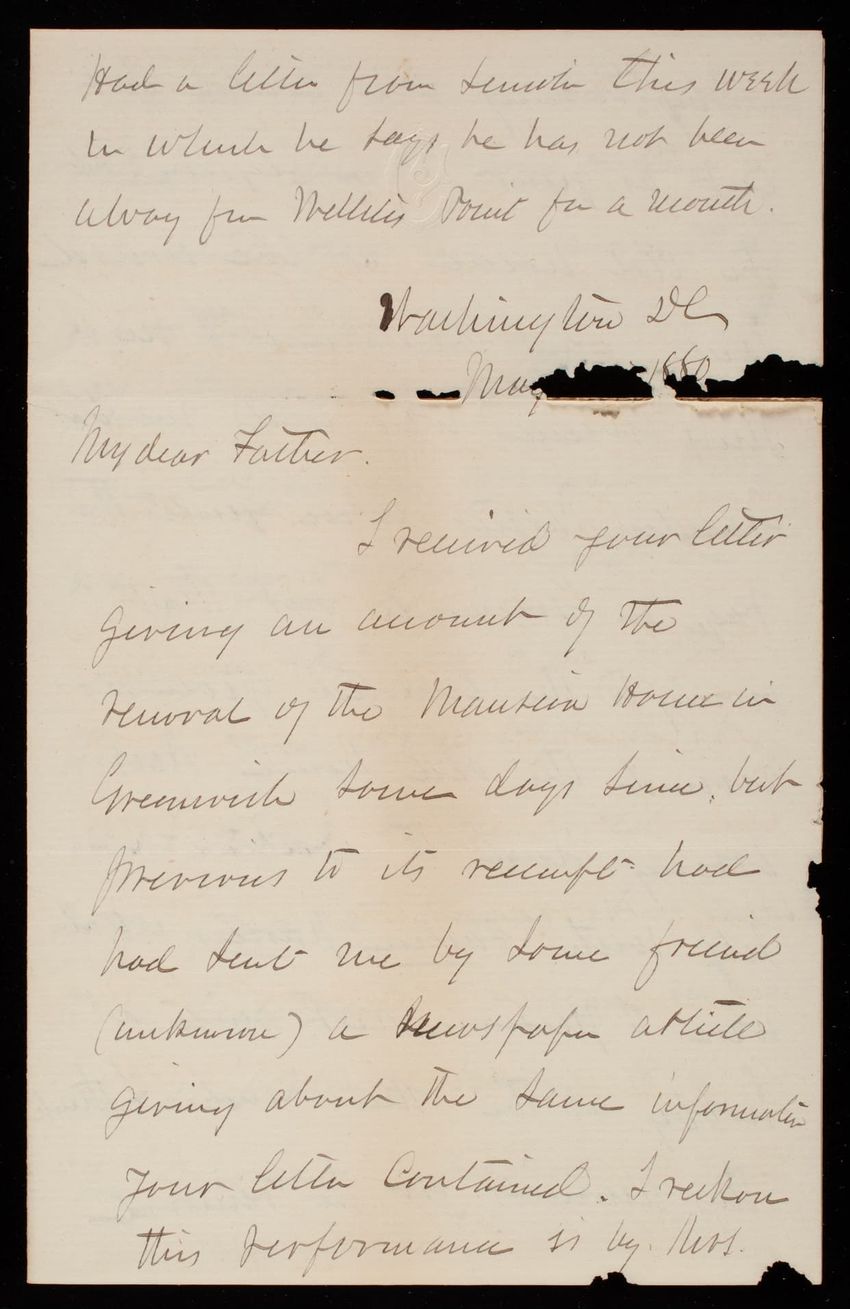 Had a letter from Lincoln this week
in which he says he has not been
away from Willets Point for a month.
Washington DC
May 1880
My dear Father.
I received your letter
giving an account of the
removal of the Mansion House in
Greenwich some days since, but
previous to its receipt had
had sent me by some friend
(unknown) a Newspaper article
giving about the same information
your letter contained. I reckon
this performance is by Mrs.